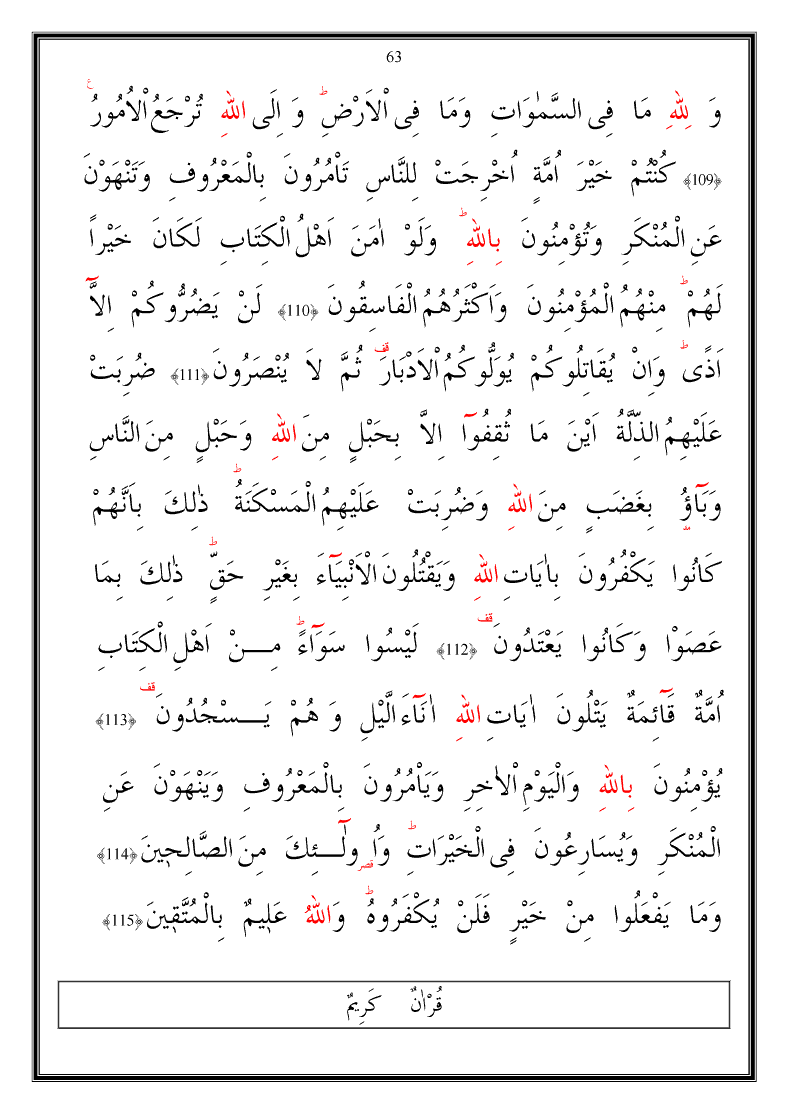 63
وَ لِلّٰهِ مَا فِى السَّمٰوَاتِ وَمَا فِى اْلاَرْضِۜ وَ اِلَى اللّٰهِ تُرْجَعُ اْلاُمُورُ ۟
﴿109﴾ كُنْتُمْ خَيْرَ اُمَّةٍ اُخْرِجَتْ لِلنَّاسِ تَاْمُرُونَ بِالْمَعْرُوفِ وَتَنْهَوْنَ
عَنِ الْمُنْكَرِ وَتُؤْمِنُونَ بِاللّٰهِۜ وَلَوْ اٰمَنَ اَهْلُ الْكِتَابِ لَكَانَ خَيْراً
لَهُمْۜ مِنْهُمُ الْمُؤْمِنُونَ وَاَكْثَرُهُمُ الْفَاسِقُونَ ﴿110﴾ لَنْ يَضُرُّوكُمْ اِلآَّ
اَذًىۜ وَاِنْ يُقَاتِلُوكُمْ يُوَلُّوكُمُ اْلاَدْبَارَ۠ ثُمَّ لاَ يُنْصَرُونَ ﴿111﴾ ضُرِبَتْ
عَلَيْهِمُ الذِّلَّةُ اَيْنَ مَا ثُقِفُٓوا اِلاَّ بِحَبْلٍ مِنَ اللّٰهِ وَحَبْلٍ مِنَ النَّاسِ
وَبَٓاؤُ۫ بِغَضَبٍ مِنَ اللّٰهِ وَضُرِبَتْ عَلَيْهِمُ الْمَسْكَنَةُۜ ذٰلِكَ بِاَنَّهُمْ
كَانُوا يَكْفُرُونَ بِاٰيَاتِ اللّٰهِ وَيَقْتُلُونَ الْاَنْبِيَٓاءَ بِغَيْرِ حَقٍّۜ ذٰلِكَ بِمَا
عَصَوْا وَكَانُوا يَعْتَدُونَ۠ ﴿112﴾ لَيْسُوا سَوَٓاءًۜ مِـــنْ اَهْلِ الْكِتَابِ
اُمَّةٌ قَٓائِمَةٌ يَتْلُونَ اٰيَاتِ اللّٰهِ اٰنَٓاءَ الَّيْلِ وَ هُمْ يَـــسْجُدُونَ۠ ﴿113﴾
يُؤْمِنُونَ بِاللّٰهِ وَالْيَوْمِ اْلاٰخِرِ وَيَاْمُرُونَ بِالْمَعْرُوفِ وَيَنْهَوْنَ عَنِ
الْمُنْكَرِ وَيُسَارِعُونَ فِى الْخَيْرَاتِۜ وَاُو۬لٰٓـــئِكَ مِنَ الصَّالِحٖينَ ﴿114﴾
وَمَا يَفْعَلُوا مِنْ خَيْرٍ فَلَنْ يُكْفَرُوهُۜ وَاللّٰهُ عَلٖيمٌ بِالْمُتَّقٖينَ ﴿115﴾
قُرْاٰنٌ كَرِيمٌ